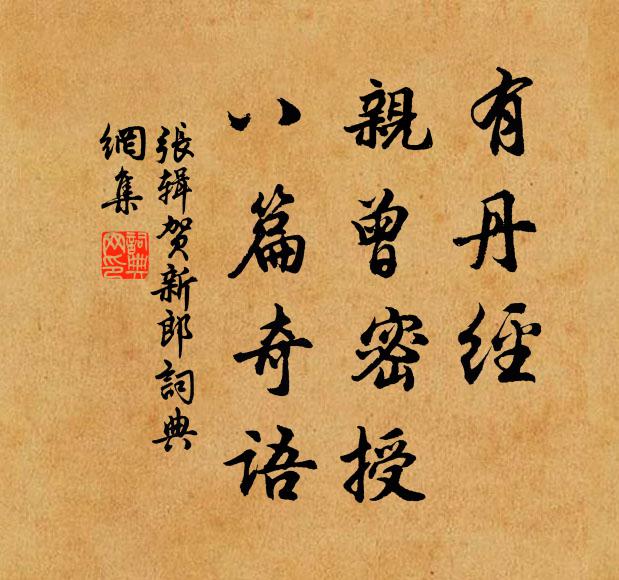 有丹經
親曾密授
八篇奇語
张辑贺新郎詞典
網集
詞典
网印